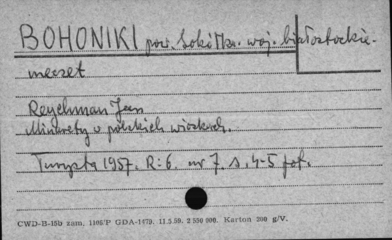 BOHONIKI pow. Sokółka. woj. białostockie.
meczet
Reychman Jan
Minarety w polskich wioskach.
Turysta 1957. R: 6. nr 7. s. 4-5 fot.
CWD-B-15b zam. 1105/P GDA-1479. 11.3.59. 2 550 000. Karton 200 g/V.